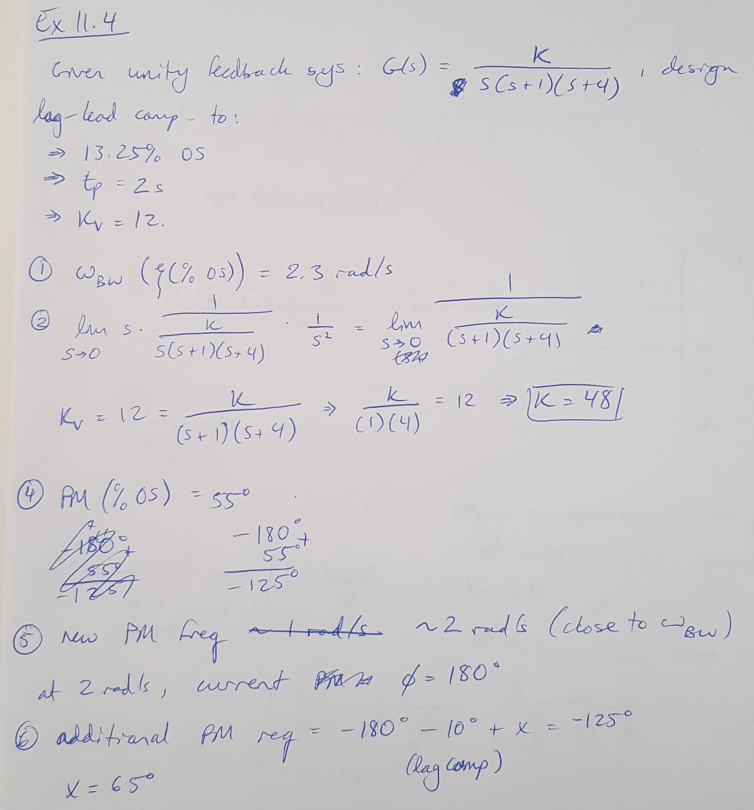 Ex 11.4
Given unity feedback sys: G(s) = K / s(s+1)(s+4) , design
lag-lead comp. to:
⇒ 13.25% OS
⇒ tp = 2s
⇒ Kv = 12.
① ωBW (ξ(% OS)) = 2.3 rad/s
② lim s→0 s · 1 / (K / s(s+1)(s+4)) · 1/s² = lim s→0 1 / (K / (s+1)(s+4))
Kv = 12 = K / (s+1)(s+4) ⇒ K / (1)(4) = 12 ⇒ K = 48
④ PM (% OS) = 55°
-180° +
55°
-125°
⑤ new PM freq ~ 1 rad/s ~2 rad/s (close to ωBW)
at 2 rad/s, current ϕ = 180°
⑥ additional PM req = -180° - 10° + x = -125°
(lag comp)
x = 65°